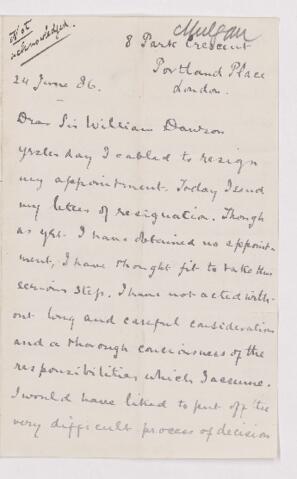 Not
acknowledged.
8 Park Crescent
Portland Place
London.
24 June 86.
Dear Sir William Dawson
yesterday I cabled to resign
my appointment. Today I send
my letter of resignation. Though
as yet I have obtained no appoint-
ment, I have thought fit to take this
serious step. I have not acted with-
out long and careful consideration
and a thorough conciousness of the
responsibilities which I assume.
I would have liked to put off the
very difficult process of decision